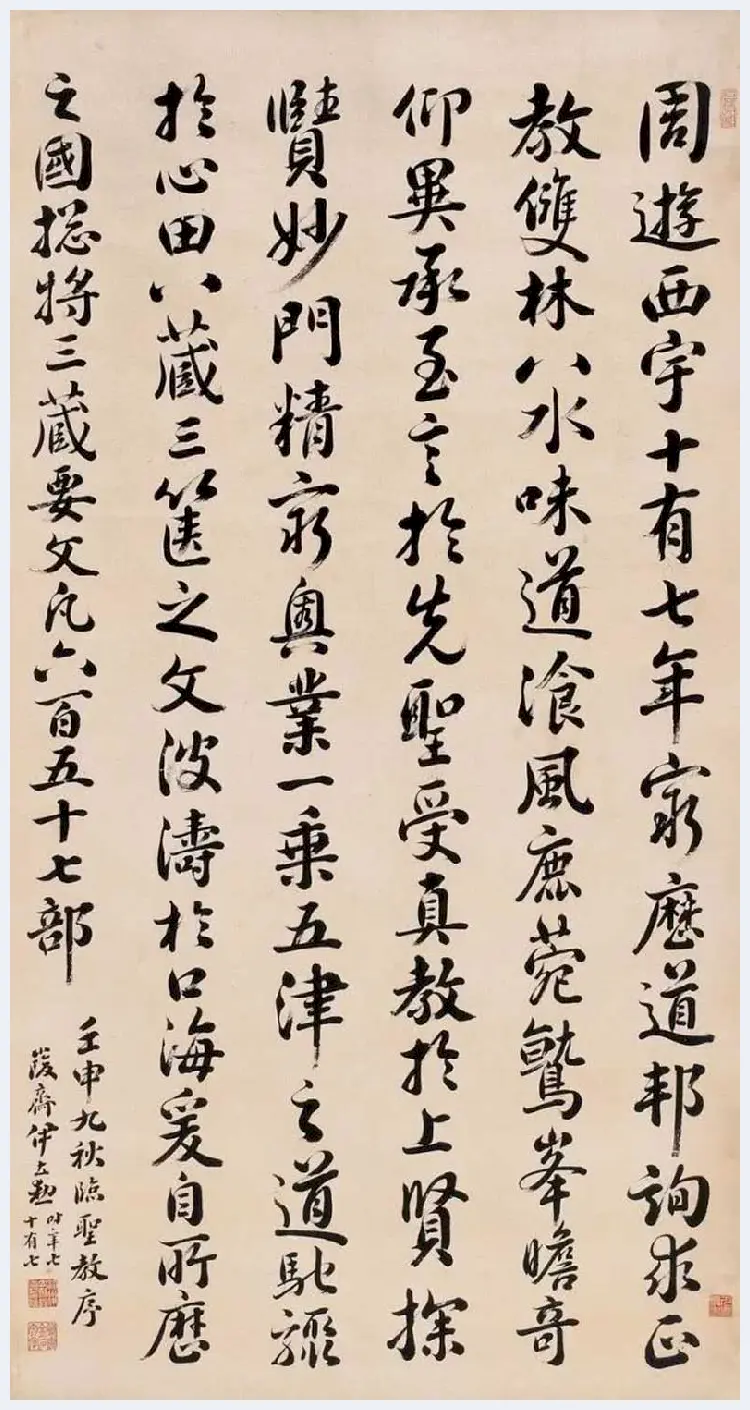 周遊西宇十有七年窮歷道邦詢求正
教雙林八水味道飡風鹿菀鷲峯瞻奇
仰異承至言於先聖受真教於上賢探
賾妙門精窮奧業一乘五津之道馳驟
於心田八藏三篋之文波濤於口海爰自所歷
之國揔將三藏要文凡六百五十七部
壬申九秋臨聖教序
齋伊立勳
時年七
十有七